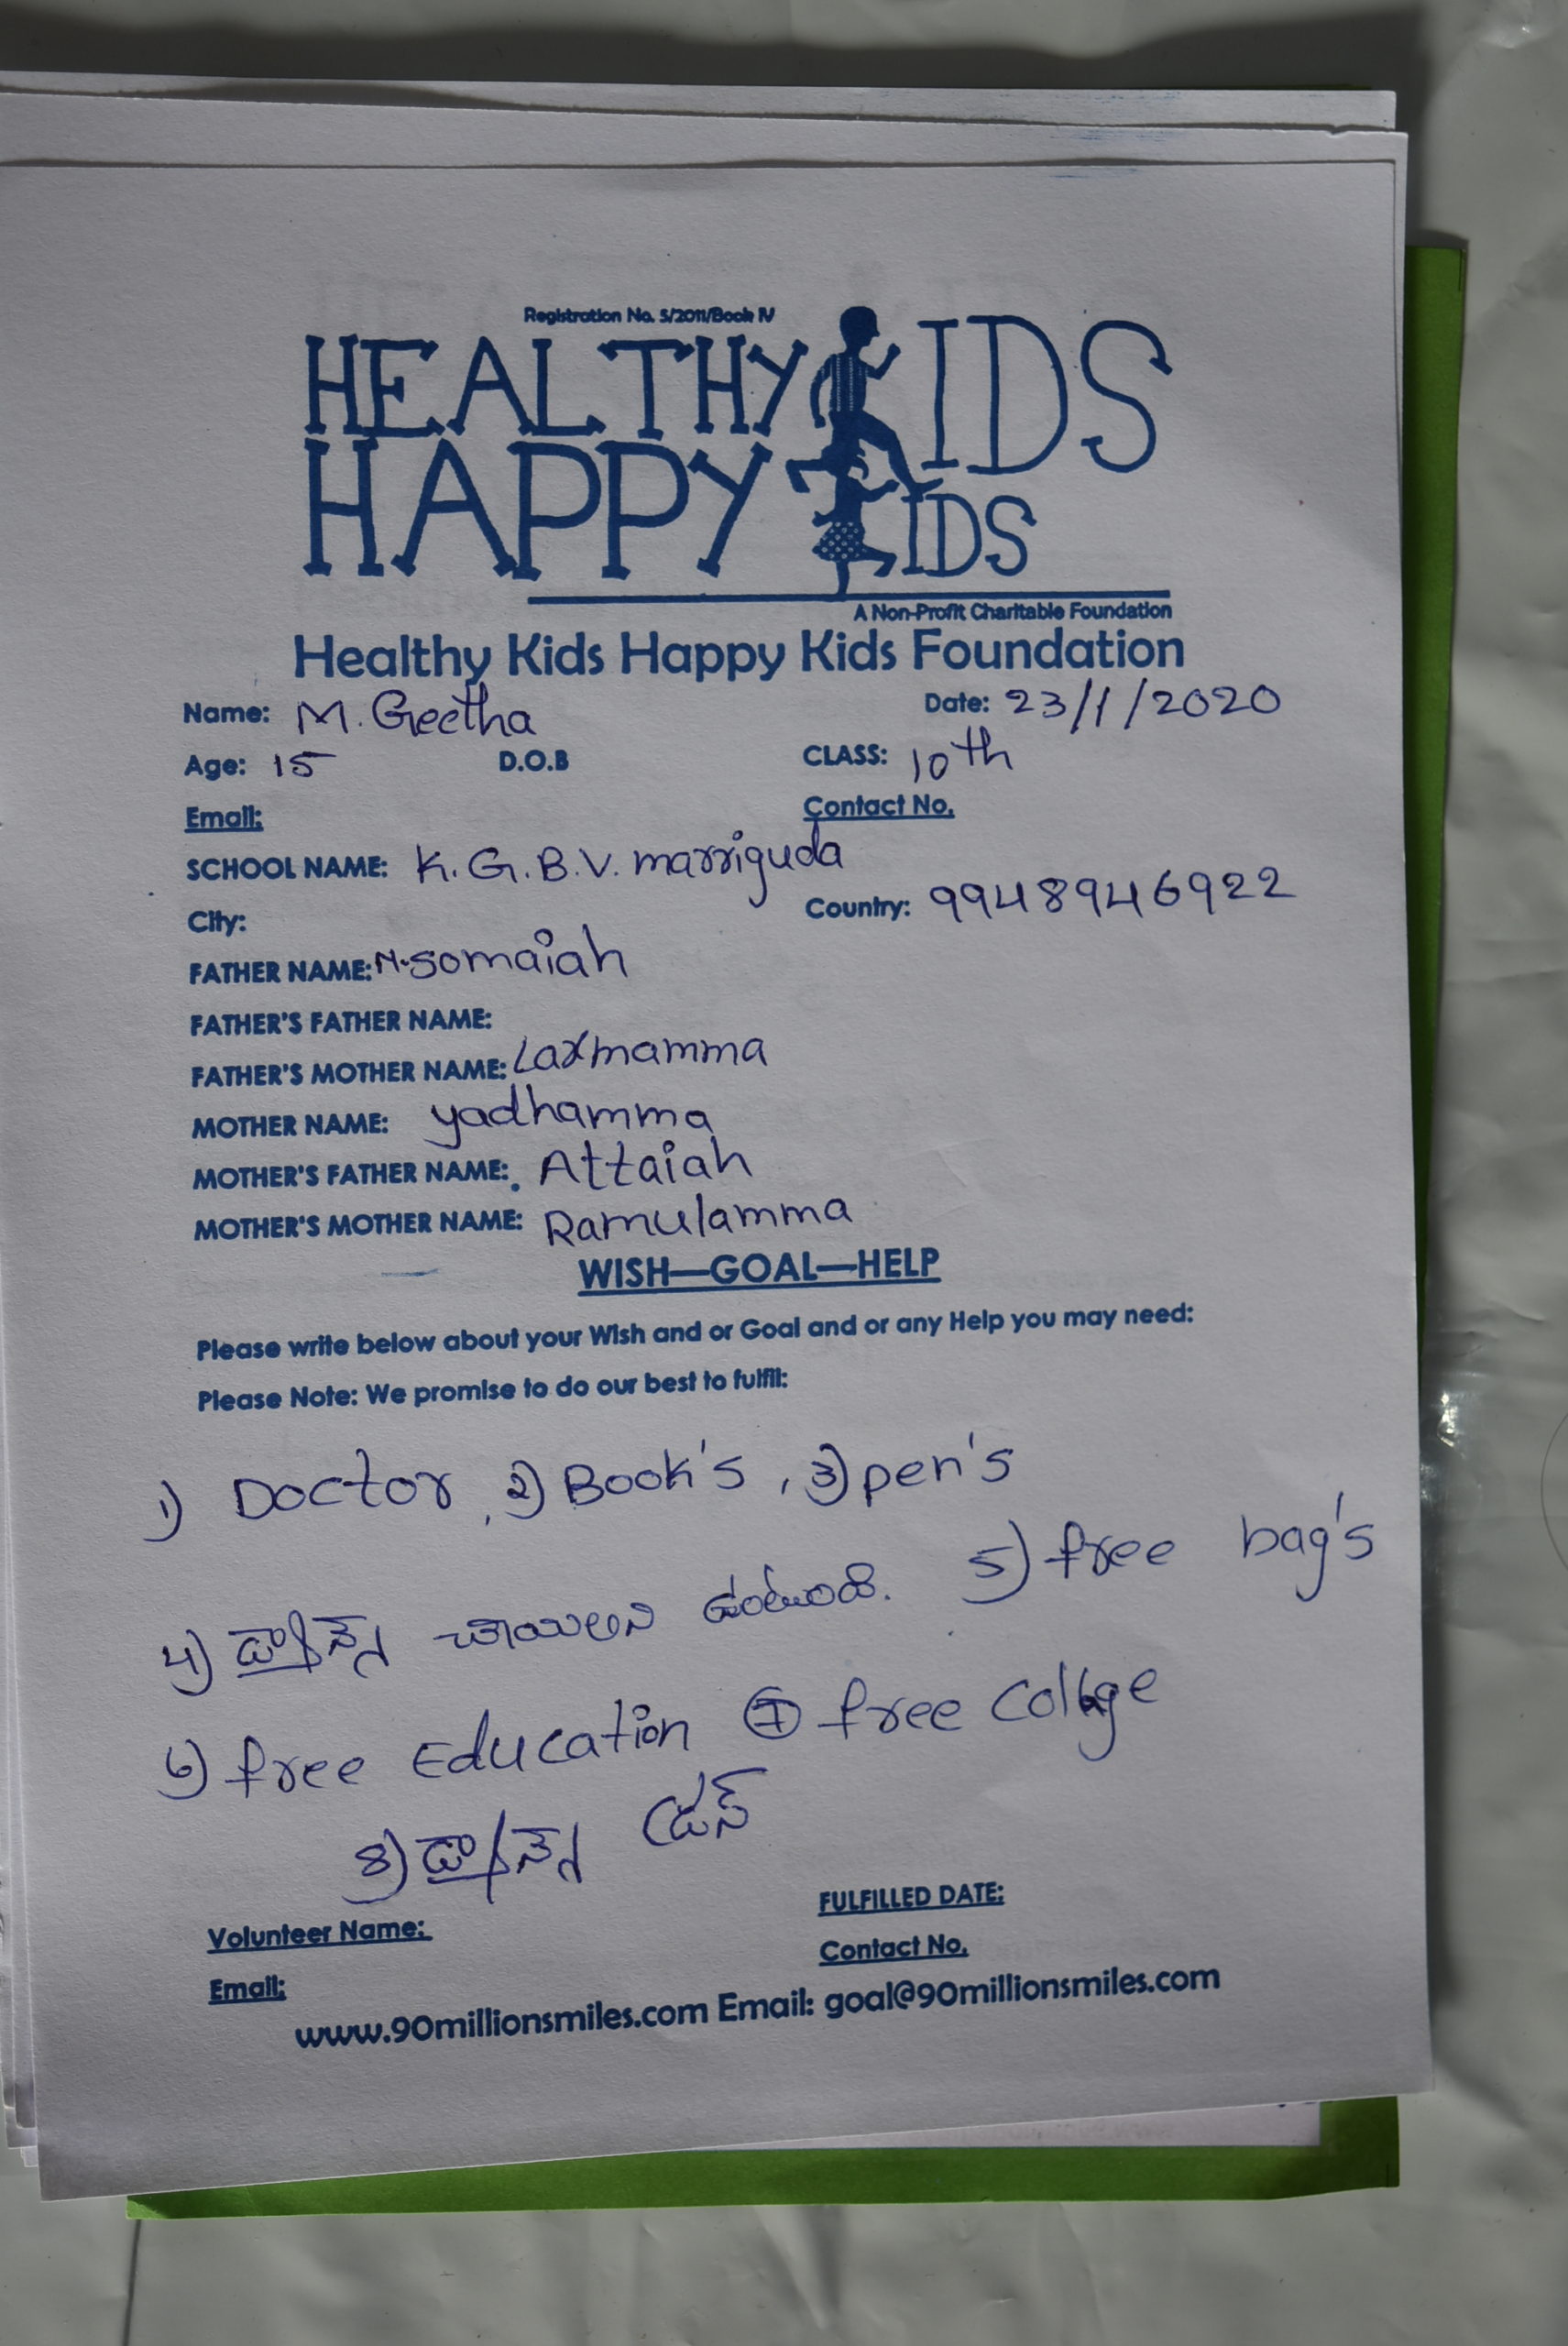 Registration No. 5/2011/Book IV
HEALTHY KIDS
HAPPY KIDS
A Non-Profit Charitable Foundation
Healthy Kids Happy Kids Foundation
Name: M. Geetha Date: 23/1/2020
Age: 15 D.O.B CLASS: 10th
Email: Contact No.
SCHOOL NAME: K. G. B. V. marriguda
City: Country: 9948946922
FATHER NAME: M. somaiah
FATHER'S FATHER NAME:
FATHER'S MOTHER NAME: Laxmamma
MOTHER NAME: yadhamma
MOTHER'S FATHER NAME: Attaiah
MOTHER'S MOTHER NAME: Ramulamma
WISH—GOAL—HELP
Please write below about your Wish and or Goal and or any Help you may need:
Please Note: We promise to do our best to fulfil:
1) Doctor, 2) Book's, 3) pen's
4) ఉంటుంది. 5) free bag's
6) free Education 7 free College
8) డ్రస్
Volunteer Name: FULFILLED DATE:
Email: Contact No.
www.90millionsmiles.com Email: goal@90millionsmiles.com